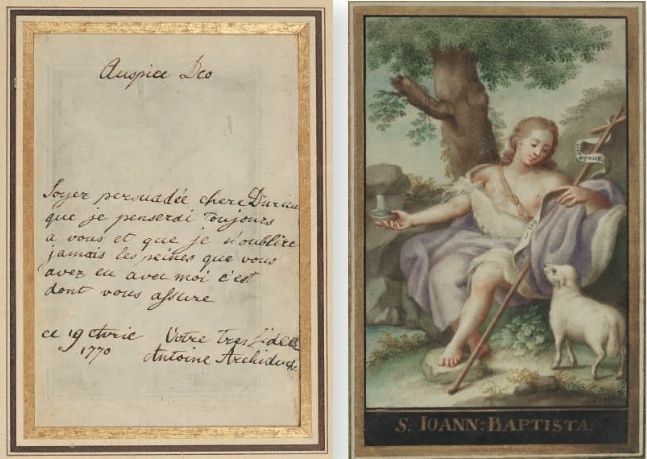 Auspice Deo
Soyez persuadée chere Durieu
que je penserai toujours
a vous et que je n'oublire
jamais les peines que vous
avez eu avec moi c'est
dont vous assure
ce 19 Avrie Votre tres fidelle
1770 Antoine Archiduch.
S. IOANN: BAPTISTA.